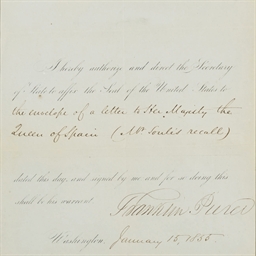 I hereby authorize and direct the Secretary
of State to affix the Seal of the United States to
the envelope of a letter to Her Majesty the
Queen of Spain (Mr Soulé's recall)
dated this day, and signed by me and for so doing this
shall be his warrant.
Franklin Pierce
Washington, January 15, 1855